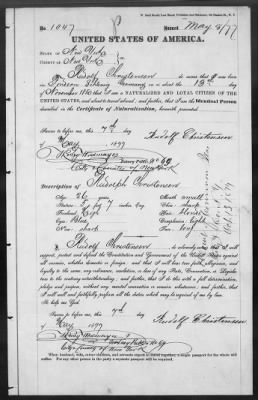 No. 1047
Issued May 8/77
UNITED STATES OF AMERICA.
STATE OF New York
COUNTY OF New York
I, Rudolf Christensen do swear that I was born
in Germany on the 13th day
of November 1850 that I am a NATURALIZED AND LOYAL CITIZEN OF THE
UNITED STATES, and about to travel abroad; and further, that I am the Identical Person
described in the Certificate of Naturalization, herewith presented.
Sworn to before me this 7th day
of May 1877
Rudolf Christensen
City & County of New York
Description of Rudolph Christensen
Age 26 years
Mouth small
Stature 5 feet 7 inches
Chin
Forehead high
Hair blond
Eyes Blue
Complexion light
Nose sharp
Face
I, Rudolf Christensen do solemnly swear that I will
support, protect and defend the Constitution and Government of the United States against
all enemies, whether domestic or foreign; and that I will bear true faith, allegiance, and
loyalty to the same, any ordinance, resolution, or law of any State, Convention, or Legislature
to the contrary notwithstanding; and further, that I do this with a full determination,
pledge and purpose, without any mental reservation or evasion whatsoever; and further, that
I will well and faithfully perform all the duties which may be required of me by law.
Sworn to before me this 7th day
of May 1877
Rudolf Christensen
City & County of New York
When husband, wife, minor children, and servants expect to travel together, a single passport for the whole will
suffice. For any other person in the party a separate passport will be required.